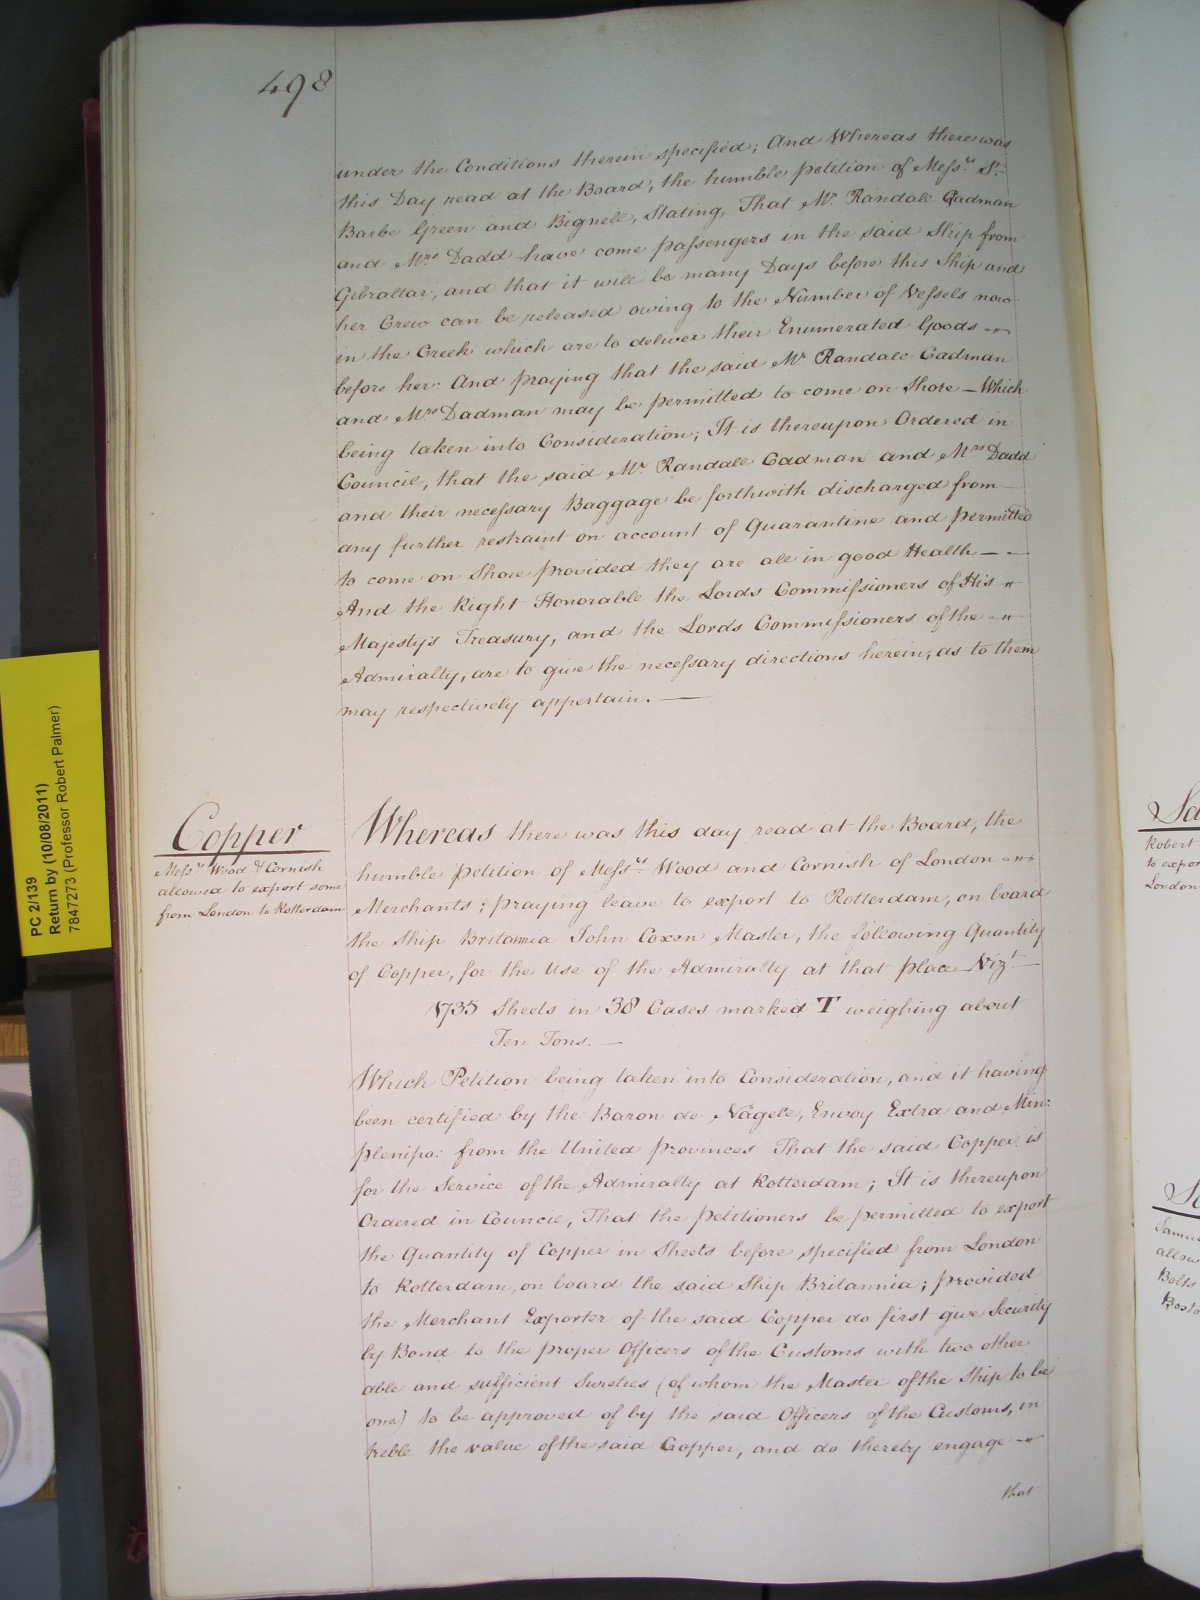 498
under the Conditions therein specified; And Whereas there was
this Day read at the Board, the humble petition of Messrs. St.
Barbe Green and Bignell, Stating, That Mr. Randall Cadman
and Mrs. Dadd have come passengers in the said Ship from
Gibraltar, and that it will be many Days before this Ship and
her Crew can be released owing to the Number of Vessels now
in the Creek which are to deliver their Enumerated Goods
before her: And praying that the said Mr. Randall Cadman
and Mrs. Dadman may be permitted to come on Shore — Which
being taken into Consideration; It is thereupon Ordered in
Council, that the said Mr. Randall Cadman and Mrs. Dadd
and their necessary Baggage be forthwith discharged from
any further restraint on account of Quarantine and permitted
to come on Shore provided they are all in good Health — —
And the Right Honorable the Lords Commissioners of His
Majesty's Treasury, and the Lords Commissioners of the
Admiralty, are to give the necessary directions herein, as to them
may respectively appertain. —
Copper
Messrs. Wood & Cornish
allowed to export some
from London to Rotterdam
Whereas there was this day read at the Board, the
humble petition of Messrs. Wood and Cornish of London
Merchants; praying leave to export to Rotterdam, on board
the Ship Britannia John Coxon Master, the following Quantity
of Copper, for the Use of the Admiralty at that place Vizt. —
1735 Sheets in 38 Cases marked T weighing about
Ten Tons. —
Which Petition being taken into Consideration, and it having
been certified by the Baron de Nagell, Envoy Extra and Min:
plenipo: from the United Provinces That the said Copper is
for the Service of the Admiralty at Rotterdam; It is thereupon
Ordered in Council, That the petitioners be permitted to export
the Quantity of Copper in Sheets before specified from London
to Rotterdam, on board the said Ship Britannia; provided
the Merchant Exporter of the said Copper do first give Security
by Bond to the proper Officers of the Customs with two other
able and sufficient Sureties (of whom the Master of the Ship to be
one) to be approved of by the said Officers of the Customs, in
treble the value of the said Copper, and do thereby engage
that
PC 2/139
Return by (10/08/2011)
7847273 (Professor Robert Palmer)
Sa
Robert
to expor
London
Samu
allow
Bolts
Bosto